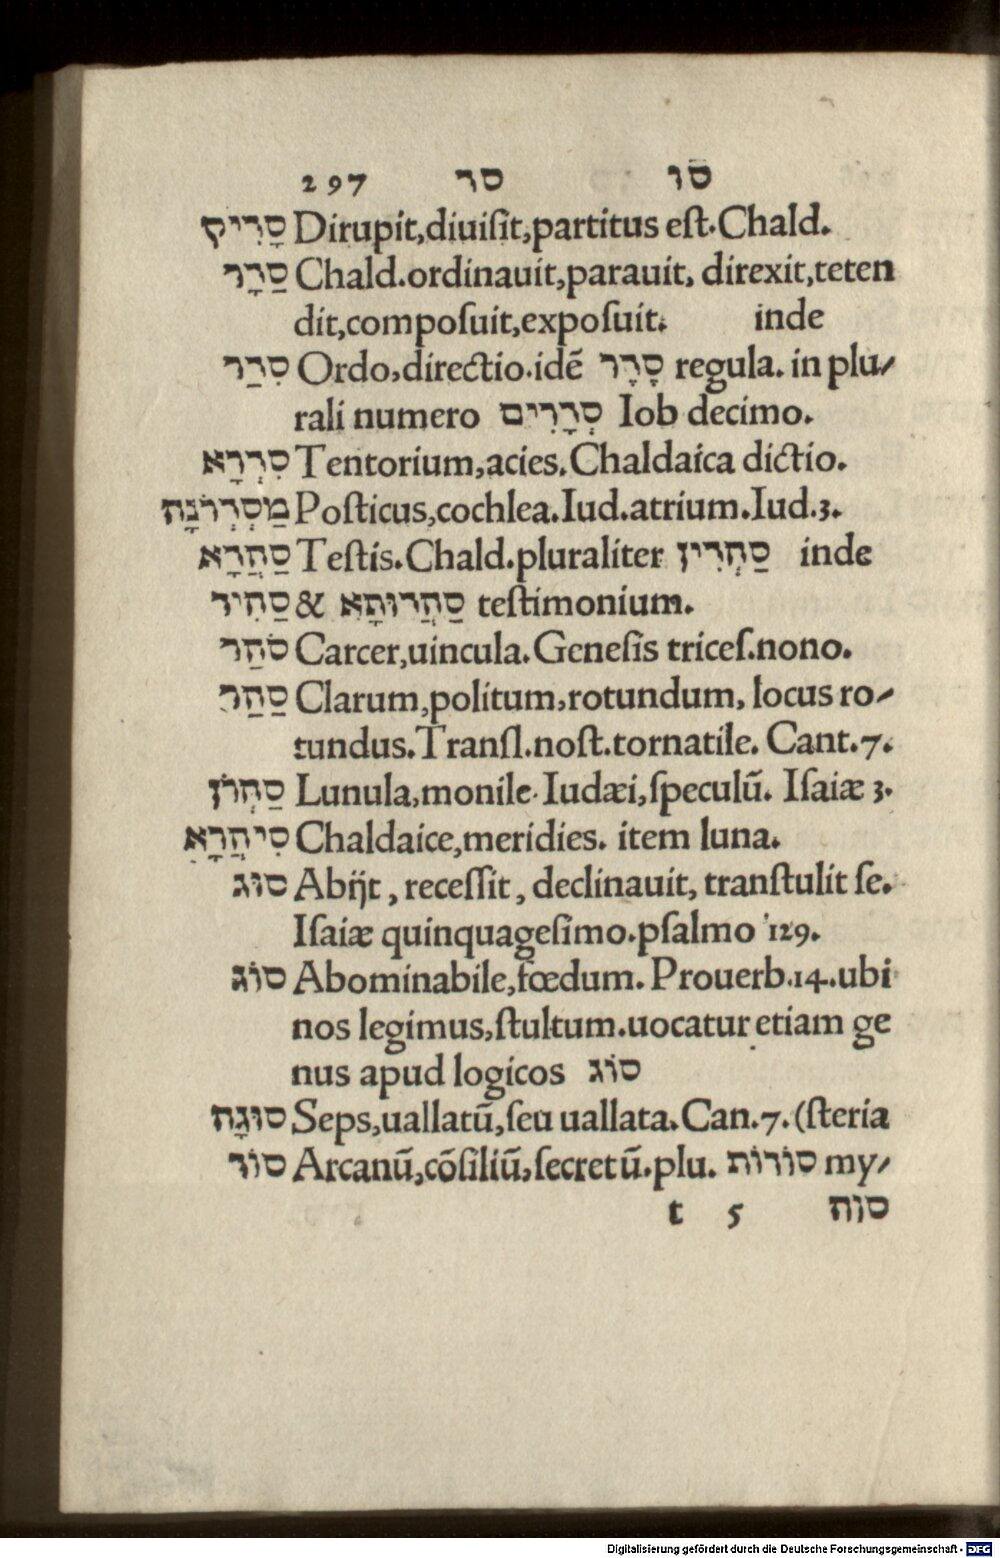 297 סר סו
סָרִיק Dirupit,diuiſit,partitus eſt.Chald.
סַרָר Chald.ordinauit,parauit, direxit,teten
dit,compoſuit,expoſuit. inde
סִרַר Ordo,directio.idē סָרָר regula. in plu⸗
rali numero סְרָרִים Iob decimo.
סִרְרָא Tentorium,acies.Chaldaica dictio.
מַסְרְרֹנָת Poſticus,cochlea.Iud.atrium.Iud.3.
סַהֲרָא Teſtis.Chald.pluraliter סַהְרִין inde
סַהִיר & סַהֲרוּתָא teſtimonium.
סֹהַר Carcer,uincula.Geneſis triceſ.nono.
סַהַר Clarum,politum,rotundum, locus ro⸗
tundus.Tranſl.noſt.tornatile. Cant.7.
סַהְרֹן Lunula,monile.Iudæi,ſpeculū. Iſaiæ 3.
סִיהֲרָא Chaldaice,meridies. item luna.
סוּג Abijt, receſſit, declinauit, tranſtulit ſe.
Iſaiæ quinquageſimo.pſalmo 129.
סוֹג Abominabile,fœdum. Prouerb.14.ubi
nos legimus,ſtultum.uocatur etiam ge
nus apud logicos סוֹג
סוּגָה Seps,uallatū,ſeu uallata.Can.7. (ſteria
סוֹר Arcanū,cōſiliū,ſecretū.plu. סוֹרוֹת my⸗
t 5 סוה
Digitalisierung gefördert durch die Deutsche Forschungsgemeinschaft - DFG